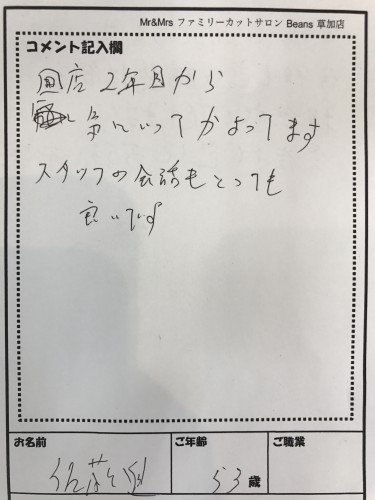 Mr&Mrs ファミリーカットサロン Beans 草加店
コメント記入欄
店 2年目から
気にいってかよってます
スタッフの会話もとっても
良いです
お名前
ご年齢
ご職業
佐藤
53歳